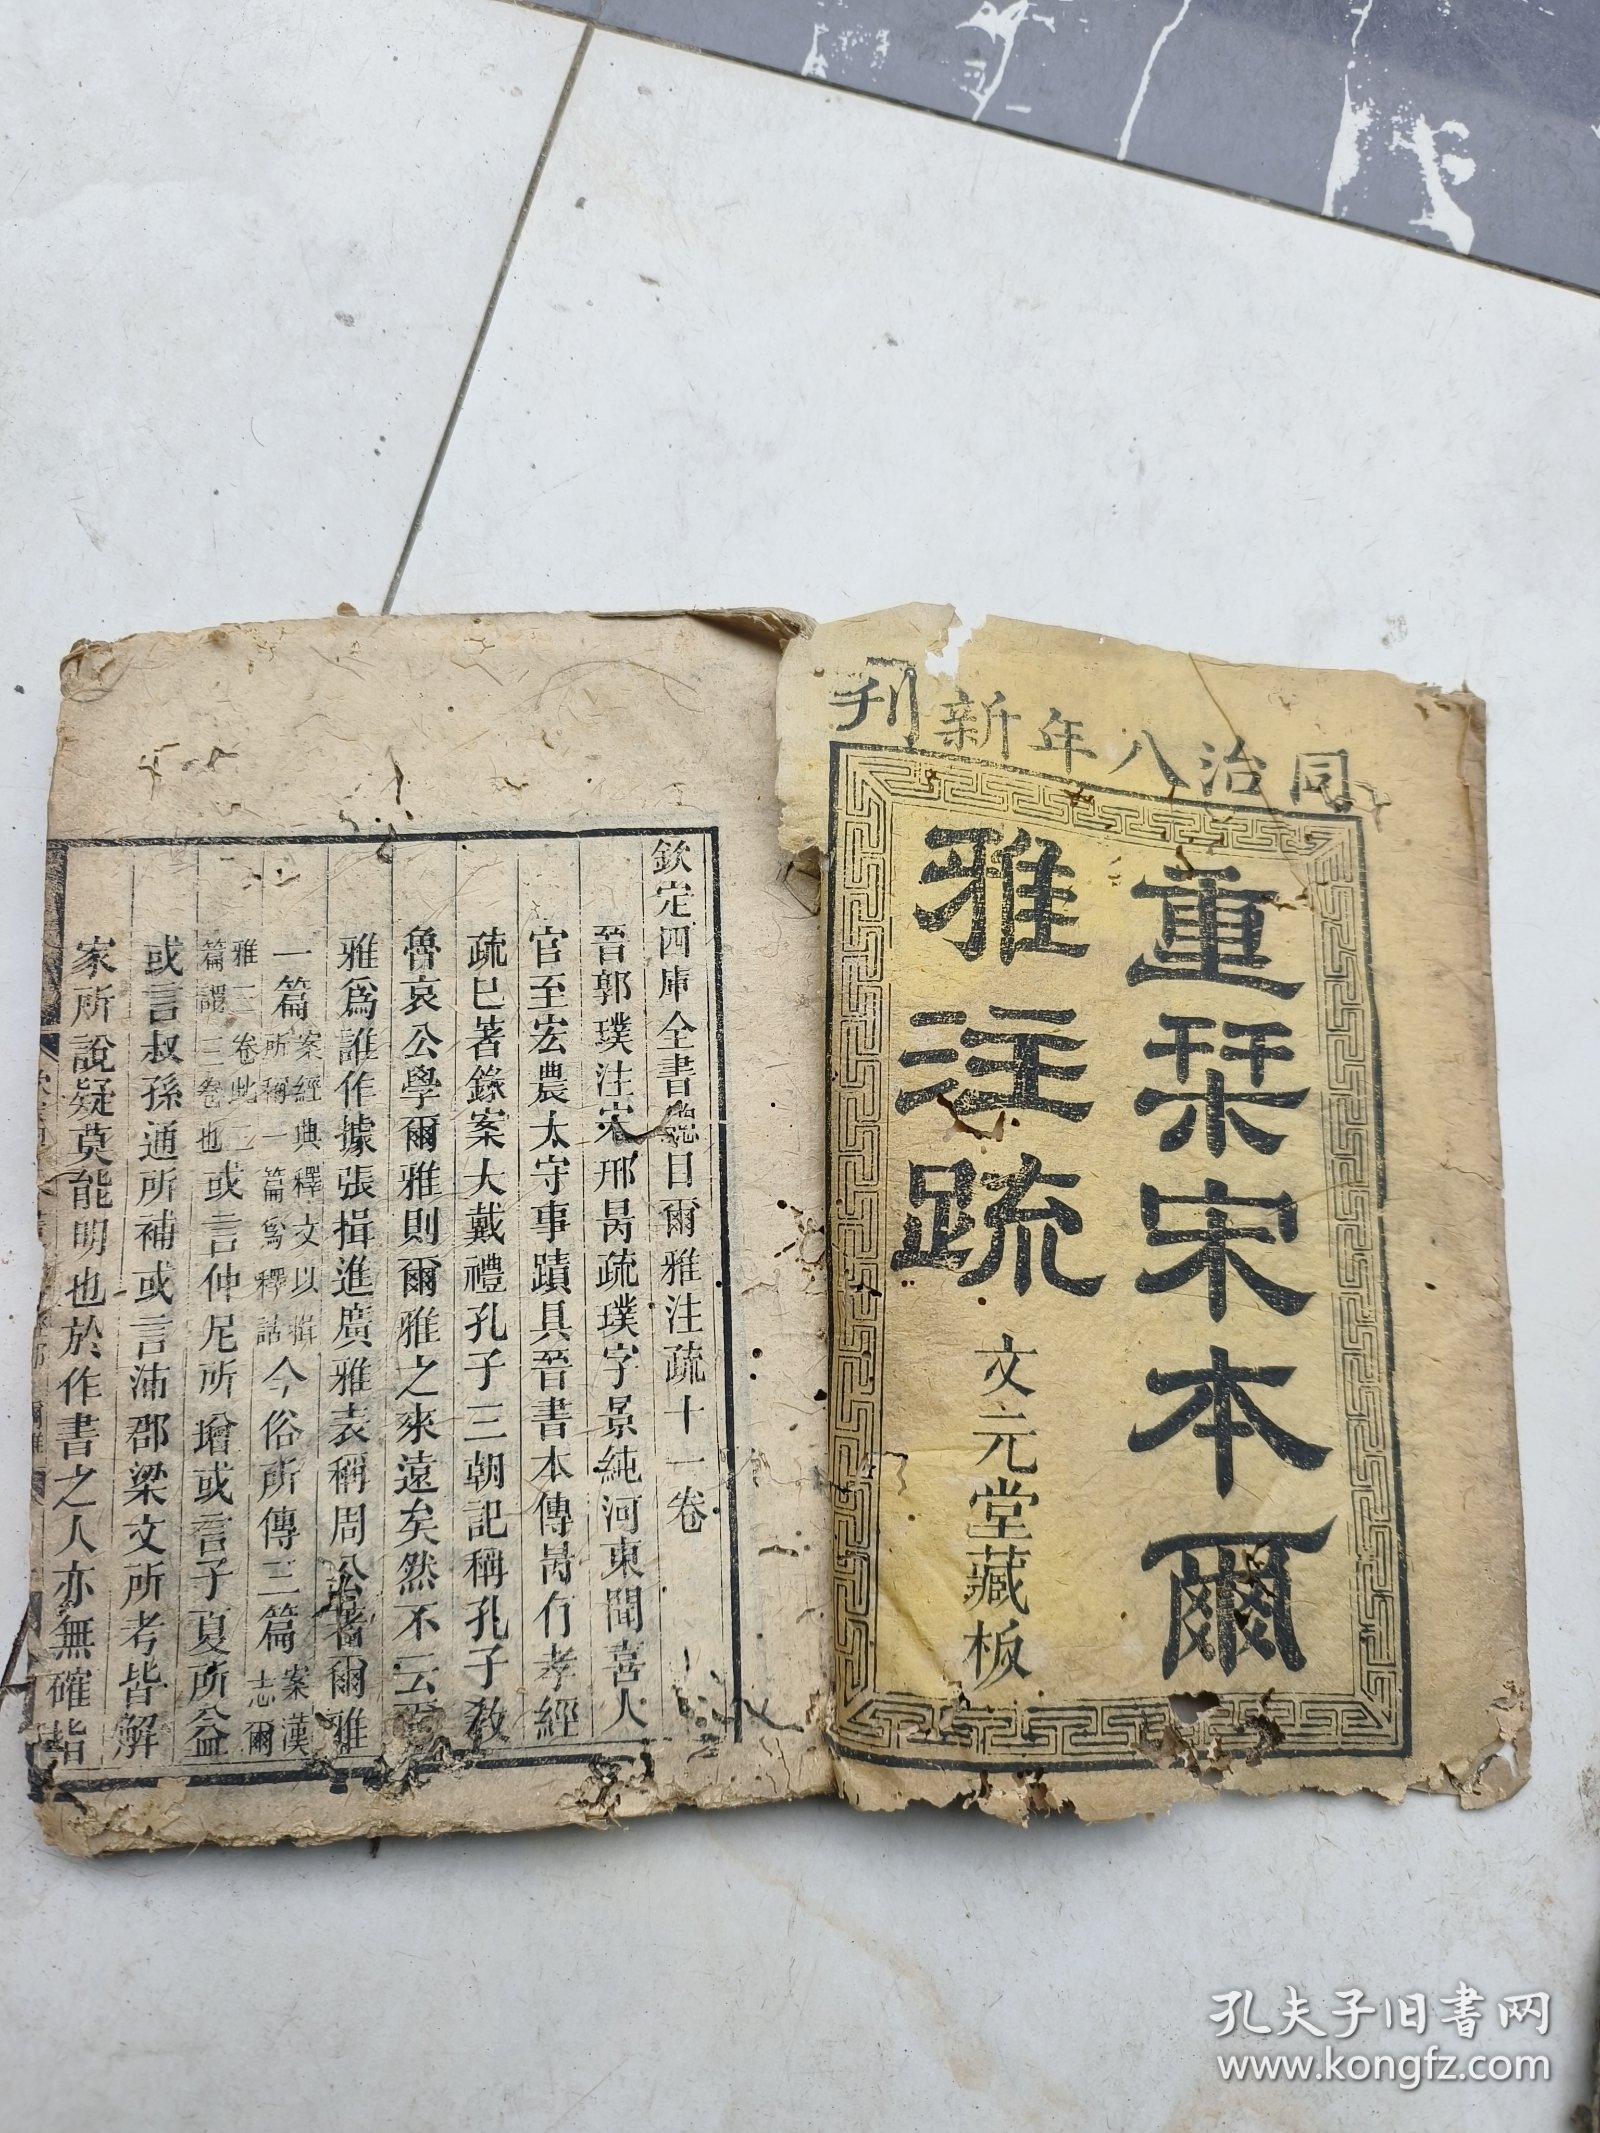 同治八年新刊
重栞宋本爾
雅注疏
文元堂藏板
欽定四庫全書總目爾雅注疏十一卷
晉郭璞注宋邢昺疏璞字景純河東聞喜人
官至宏農太守事蹟具晉書本傳昺有孝經
疏已著錄案大戴禮孔子三朝記稱孔子教
魯哀公學爾雅則爾雅之來遠矣然不云爾
雅爲誰作據張揖進廣雅表稱周公著爾雅
一篇案經典釋文以揖所稱一篇爲釋詁今俗所傳三篇案漢志爾
雅三卷此三篇謂三卷也或言仲尼所增或言子夏所益
或言叔孫通所補或言沛郡梁文所考皆解
家所說疑莫能明也於作書之人亦無確指
孔夫子旧书网
www.kongfz.com